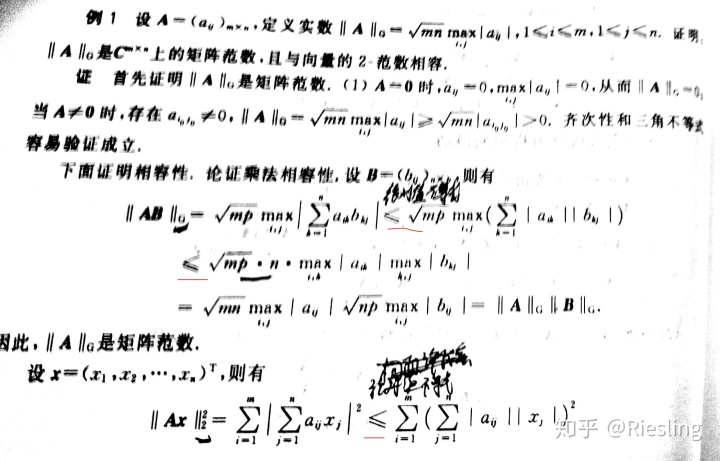 例 1 设 A=(aᵢⱼ)ₘ×ₙ,定义实数‖A‖_G=√mn max_{i,j}|aᵢⱼ|,1≤i≤m,1≤j≤n. 证明
‖A‖_G是C^{m×n}上的矩阵范数,且与向量的 2-范数相容.
证 首先证明‖A‖_G是矩阵范数. (1) A=0 时,aᵢⱼ=0,max_{i,j}|aᵢⱼ|=0,从而‖A‖_G=0,
当 A≠0 时,存在 a_{i₀j₀}≠0,‖A‖_G=√mn max_{i,j}|aᵢⱼ|≥√mn|a_{i₀j₀}|>0. 齐次性和三角不等式
容易验证成立.
下面证明相容性. 论证乘法相容性,设 B=(bᵢⱼ)ₙ×ₚ,则有
绝对值不等式
‖AB‖_G=√mp max_{i,j}|∑_{k=1}^{n} aᵢₖbₖⱼ|≤√mp max_{i,j}(∑_{k=1}^{n}|aᵢₖ||bₖⱼ|)
≤√mp·n·max_{i,k}|aᵢₖ|max_{k,j}|bₖⱼ|
=√mn max_{i,j}|aᵢⱼ|√np max_{i,j}|bᵢⱼ|=‖A‖_G‖B‖_G.
因此,‖A‖_G是矩阵范数.
设 x=(x₁,x₂,⋯,xₙ)ᵀ,则有
绝对值不等式
‖Ax‖₂²=∑_{i=1}^{m}|∑_{j=1}^{n} aᵢⱼxⱼ|²≤∑_{i=1}^{m}(∑_{j=1}^{n}|aᵢⱼ||xⱼ|)²
知乎 @Riesling